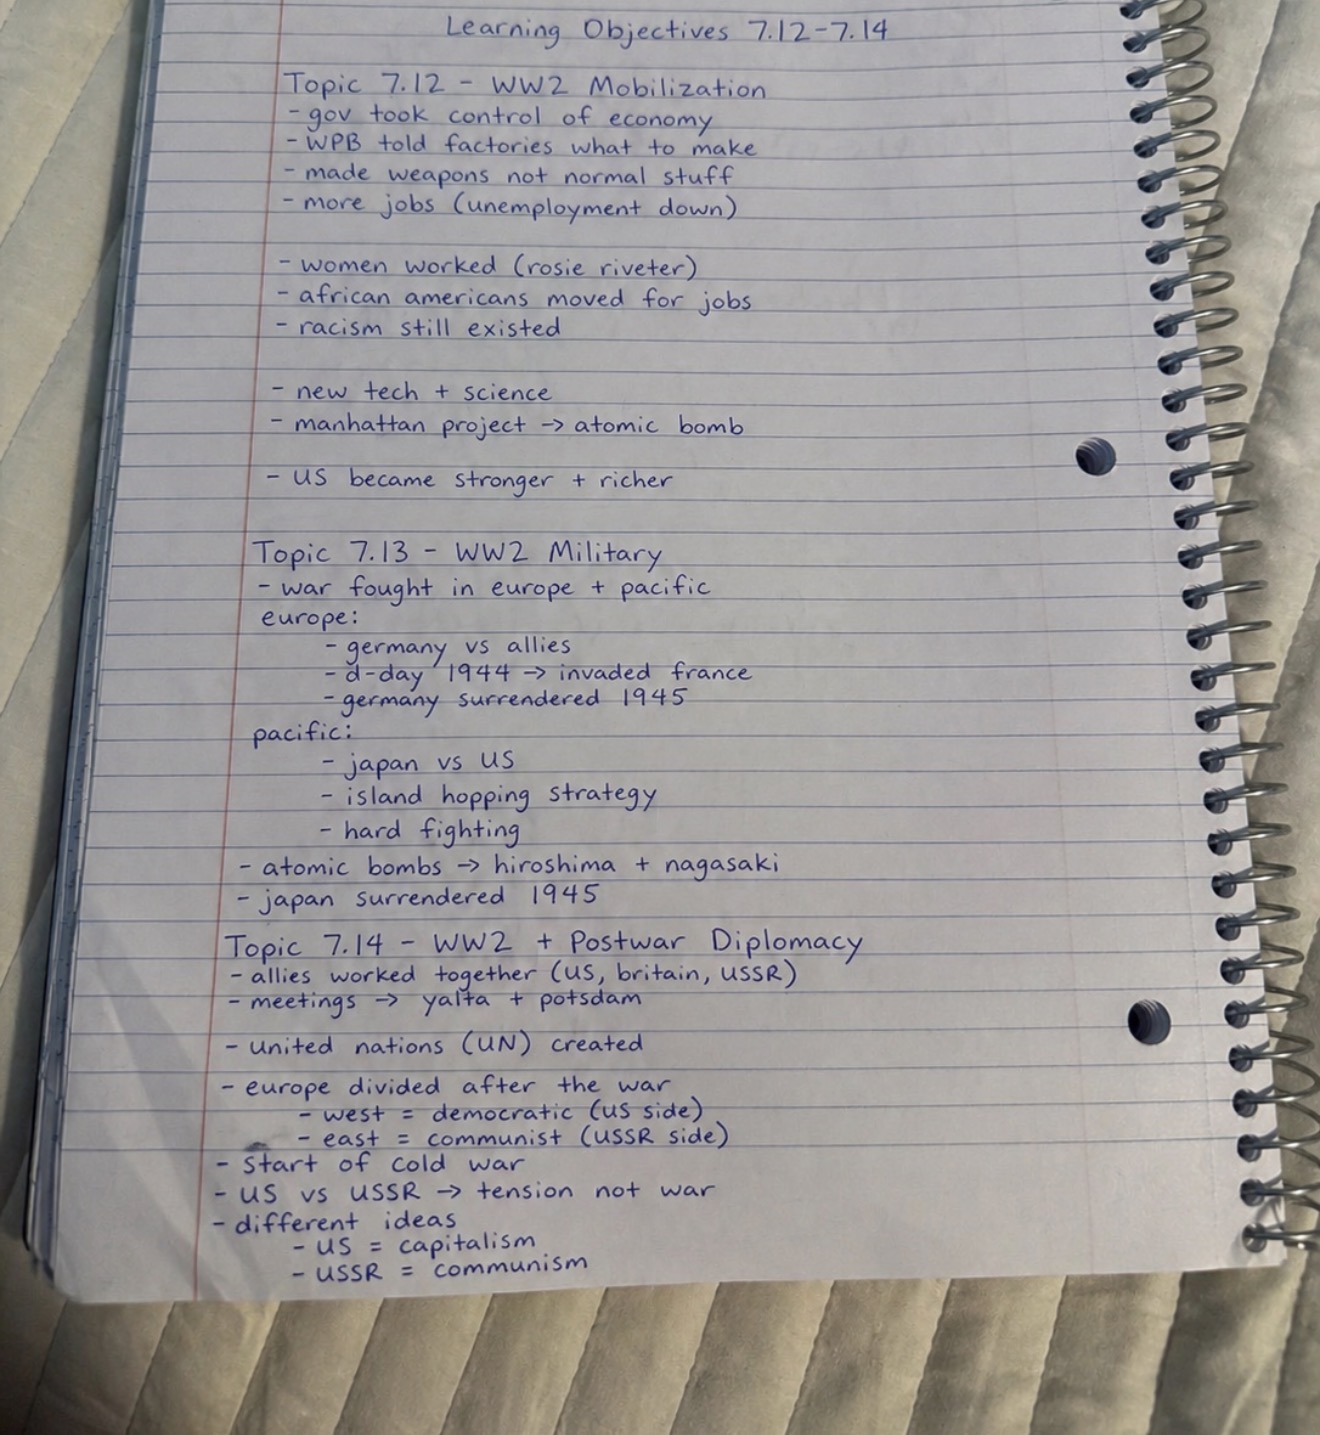 Learning Objectives 7.12-7.14
Topic 7.12 - WW2 Mobilization
- gov took control of economy
- WPB told factories what to make
- made weapons not normal stuff
- more jobs (unemployment down)
- women worked (rosie riveter)
- african americans moved for jobs
- racism still existed
- new tech + science
- manhattan project → atomic bomb
- US became stronger + richer
Topic 7.13 - WW2 Military
- war fought in europe + pacific
europe:
- germany vs allies
- d-day 1944 → invaded france
- germany surrendered 1945
pacific:
- japan vs US
- island hopping strategy
- hard fighting
- atomic bombs → hiroshima + nagasaki
- japan surrendered 1945
Topic 7.14 - WW2 + Postwar Diplomacy
- allies worked together (US, britain, USSR)
- meetings → yalta + potsdam
- united nations (UN) created
- europe divided after the war
- west = democratic (US side)
- east = communist (USSR side)
- start of cold war
- US vs USSR → tension not war
- different ideas
- US = capitalism
- USSR = communism